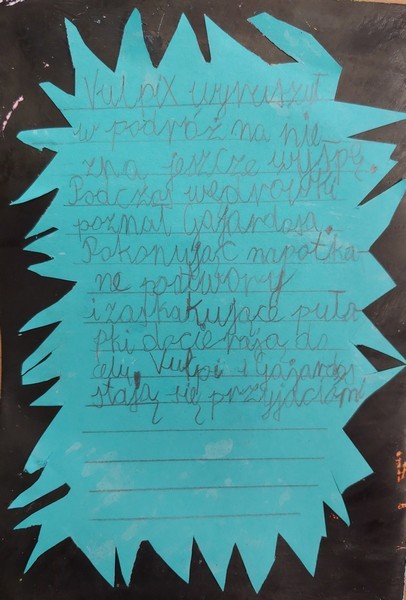 Vulpix wyruszył
w podróż na nie-
zną jeszcze wyspę.
Podczas wędrówki
poznał Gajardosa.
Pokonując napotka-
ne potwory
i zaskakujące puła-
pki docierają do
celu Vulpi i Gajardos
stają się przyjaciółmi